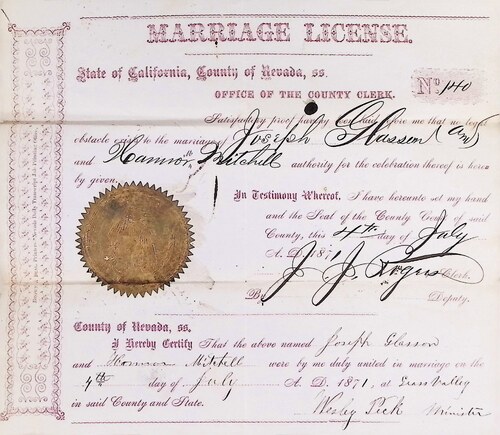 MARRIAGE LICENSE.
State of California, County of Nevada, ss.
OFFICE OF THE COUNTY CLERK.
No 140
Satisfactory proof having been before me that no legal
obstacle exists to the marriage of Joseph Glasson
and Mitchell authority for the celebration thereof is here-
by given.
In Testimony Whereof, I have hereunto set my hand
and the Seal of the County Court of said
County, this 4th day of July
A. D. 1871
J. J. Rogers Clerk.
By Deputy.
County of Nevada, ss.
I Hereby Certify That the above named Joseph Glasson
and Mitchell were by me duly united in marriage on the
4th day of July A. D. 1871, at Grass Valley
in said County and State.
Wesley Peck Minister